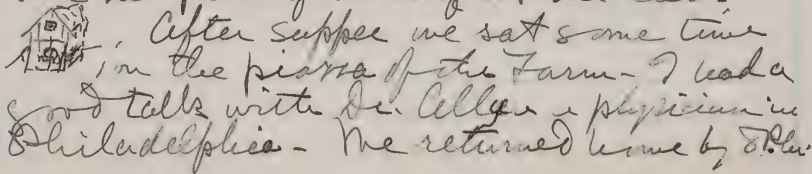 After supper we sat some time
on the piazza of the Farm - I had a
good talk with Dr. Allyn a physician in
Philadelphia - We returned home by